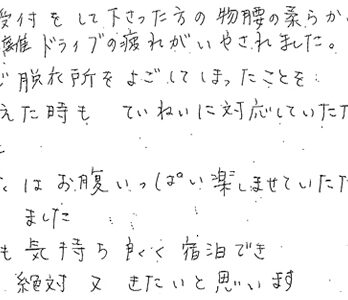 受付をして下さった方の物腰の柔らか
離ドライブの疲れがいやされました。
ご脱衣所をよごしてしまったことを
えた時も ていねいに対応していた
はお腹いっぱい楽しませていた
ました
も気持ち良く宿泊でき
絶対又きたいと思います